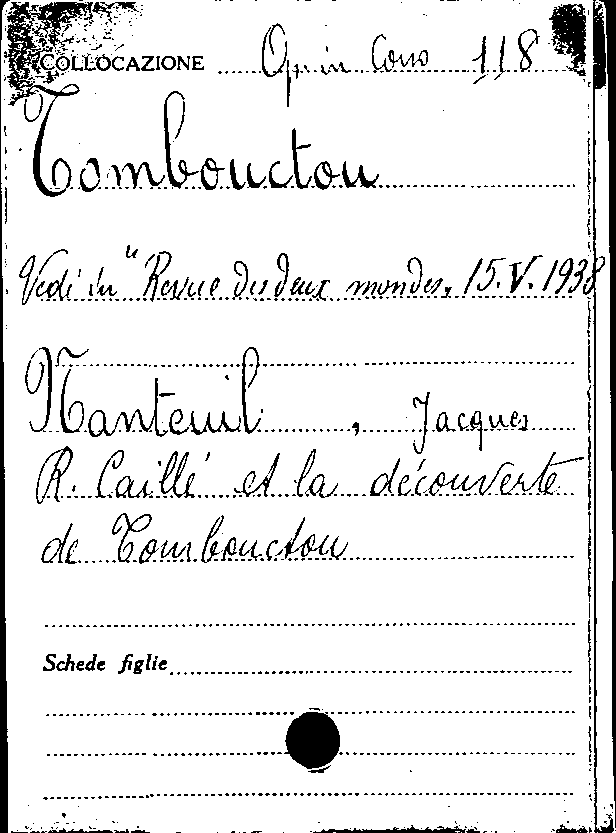 COLLOCAZIONE Op. in Cons 118
Tombouctou
Vedi in "Revue des deux mondes, 15.V.1938
Nanteuil, Jacques
R. Caillé et la découverte
de Tombouctou
Schede figlie